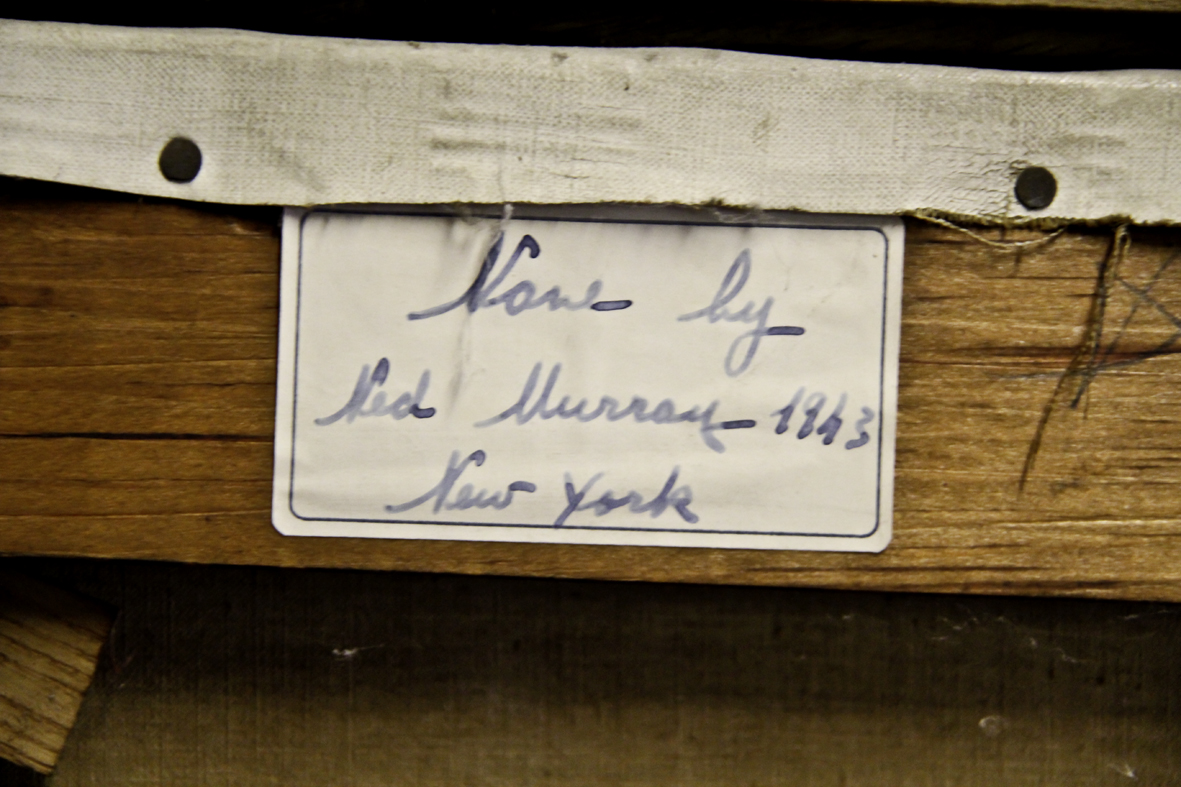 None by
Ned Murray 1943
New York